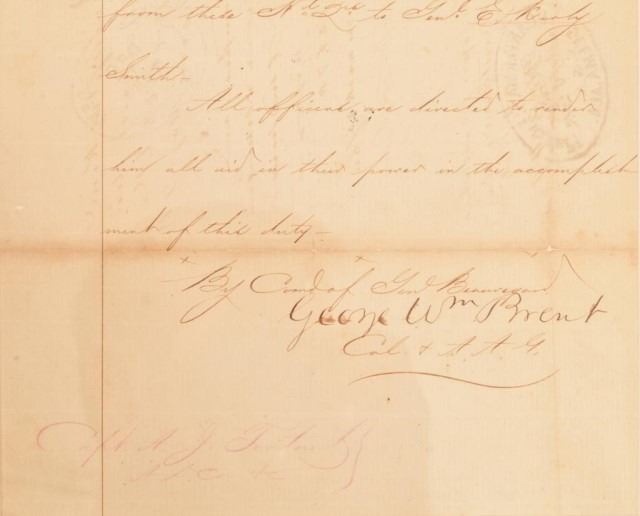 from these Hd. Qrs to Genl E. Kirby
Smith—
All officers are directed to render
him all aid in their power in the accomplish
ment of this duty—
By Comd of Genl Beauregard
George Wm Brent
Col & A A G.
Capt A. J.